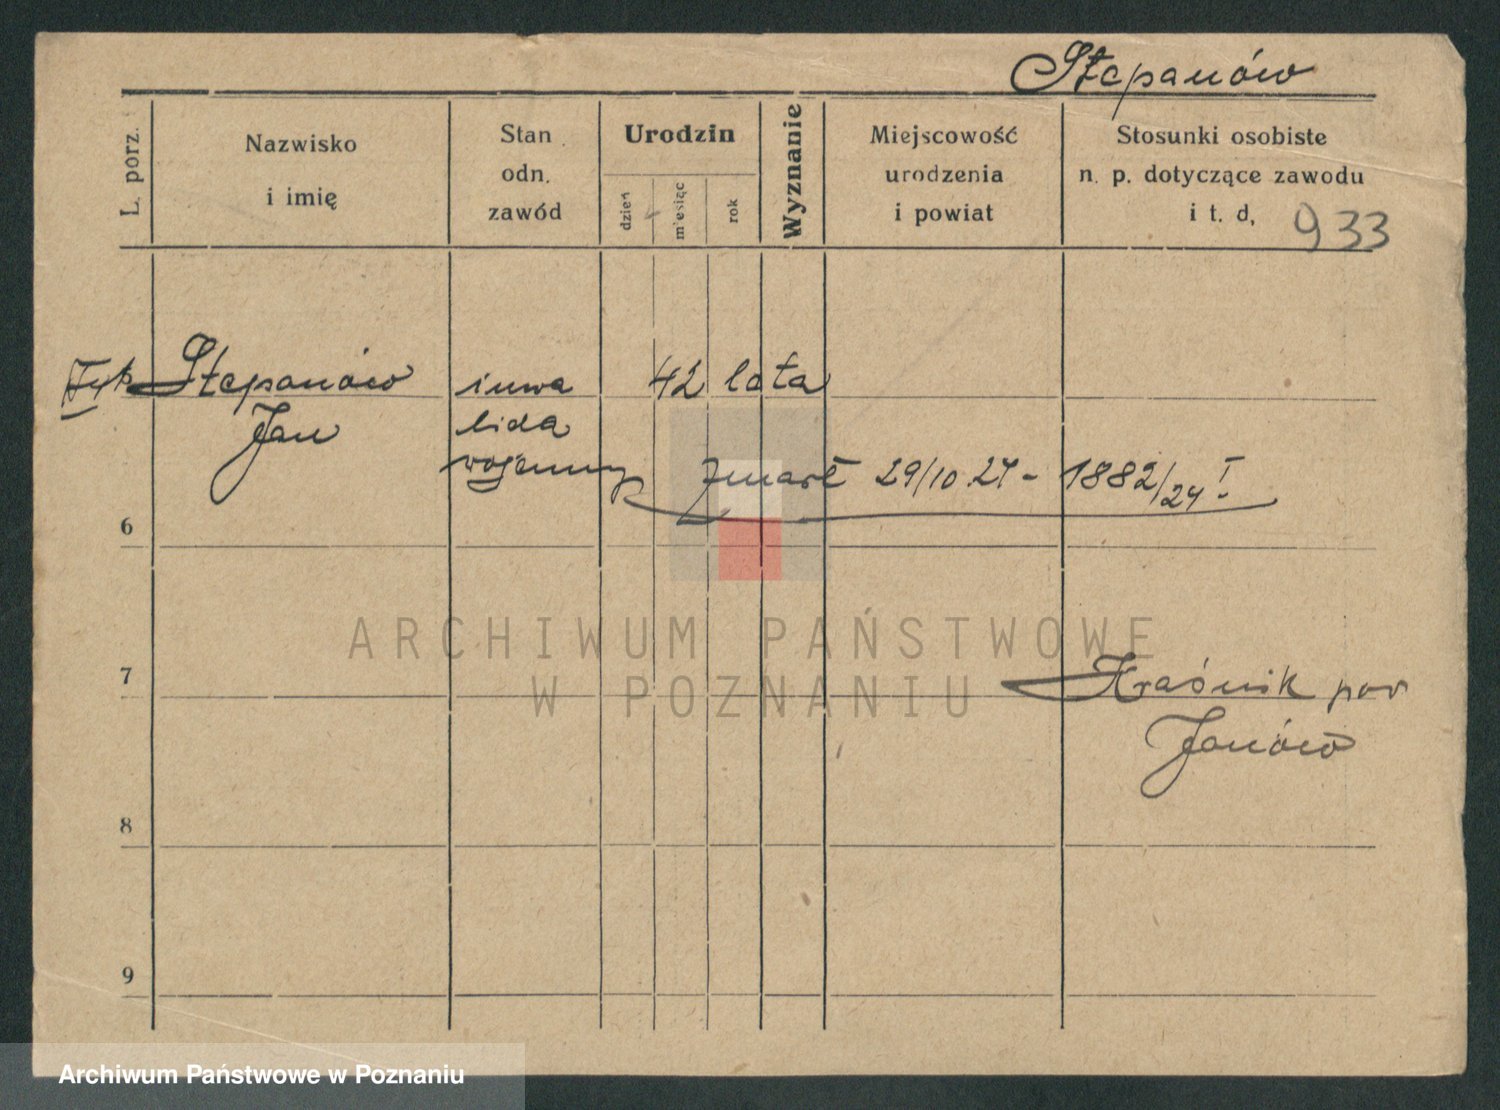 Stepanów
L. porz.
Nazwisko
i imię
Stan
odn.
zawód
Urodzin
dzień
miesiąc
rok
Wyznanie
Miejscowość
urodzenia
i powiat
Stosunki osobiste
n. p. dotyczące zawodu
i t. d,
933
Stepanów
Jan
inwa
lida
wojenny
42 lata
zmarł 29/10 24 - 1882/24 I
6
7
Kraśnik pow
Janów
8
9
ARCHIWUM PAŃSTWOWE
W POZNANIU
Archiwum Państwowe w Poznaniu